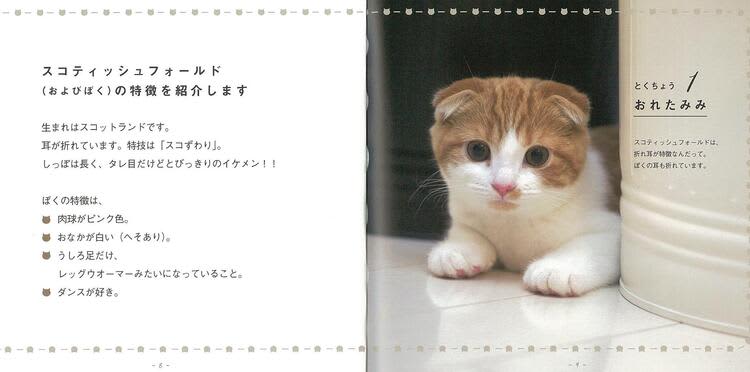 スコティッシュフォールド
(およびぼく)の特徴を紹介します
生まれはスコットランドです。
耳が折れています。特技は「スコずわり」。
しっぽは長く、タレ目だけどとびっきりのイケメン!!
ぼくの特徴は、
肉球がピンク色。
おなかが白い(へそあり)。
うしろ足だけ、
レッグウオーマーみたいになっていること。
ダンスが好き。
- 8 -
とくちょう 1
おれたみみ
スコティッシュフォールドは、
折れ耳が特徴なんだって。
ぼくの耳も折れています。
- 9 -